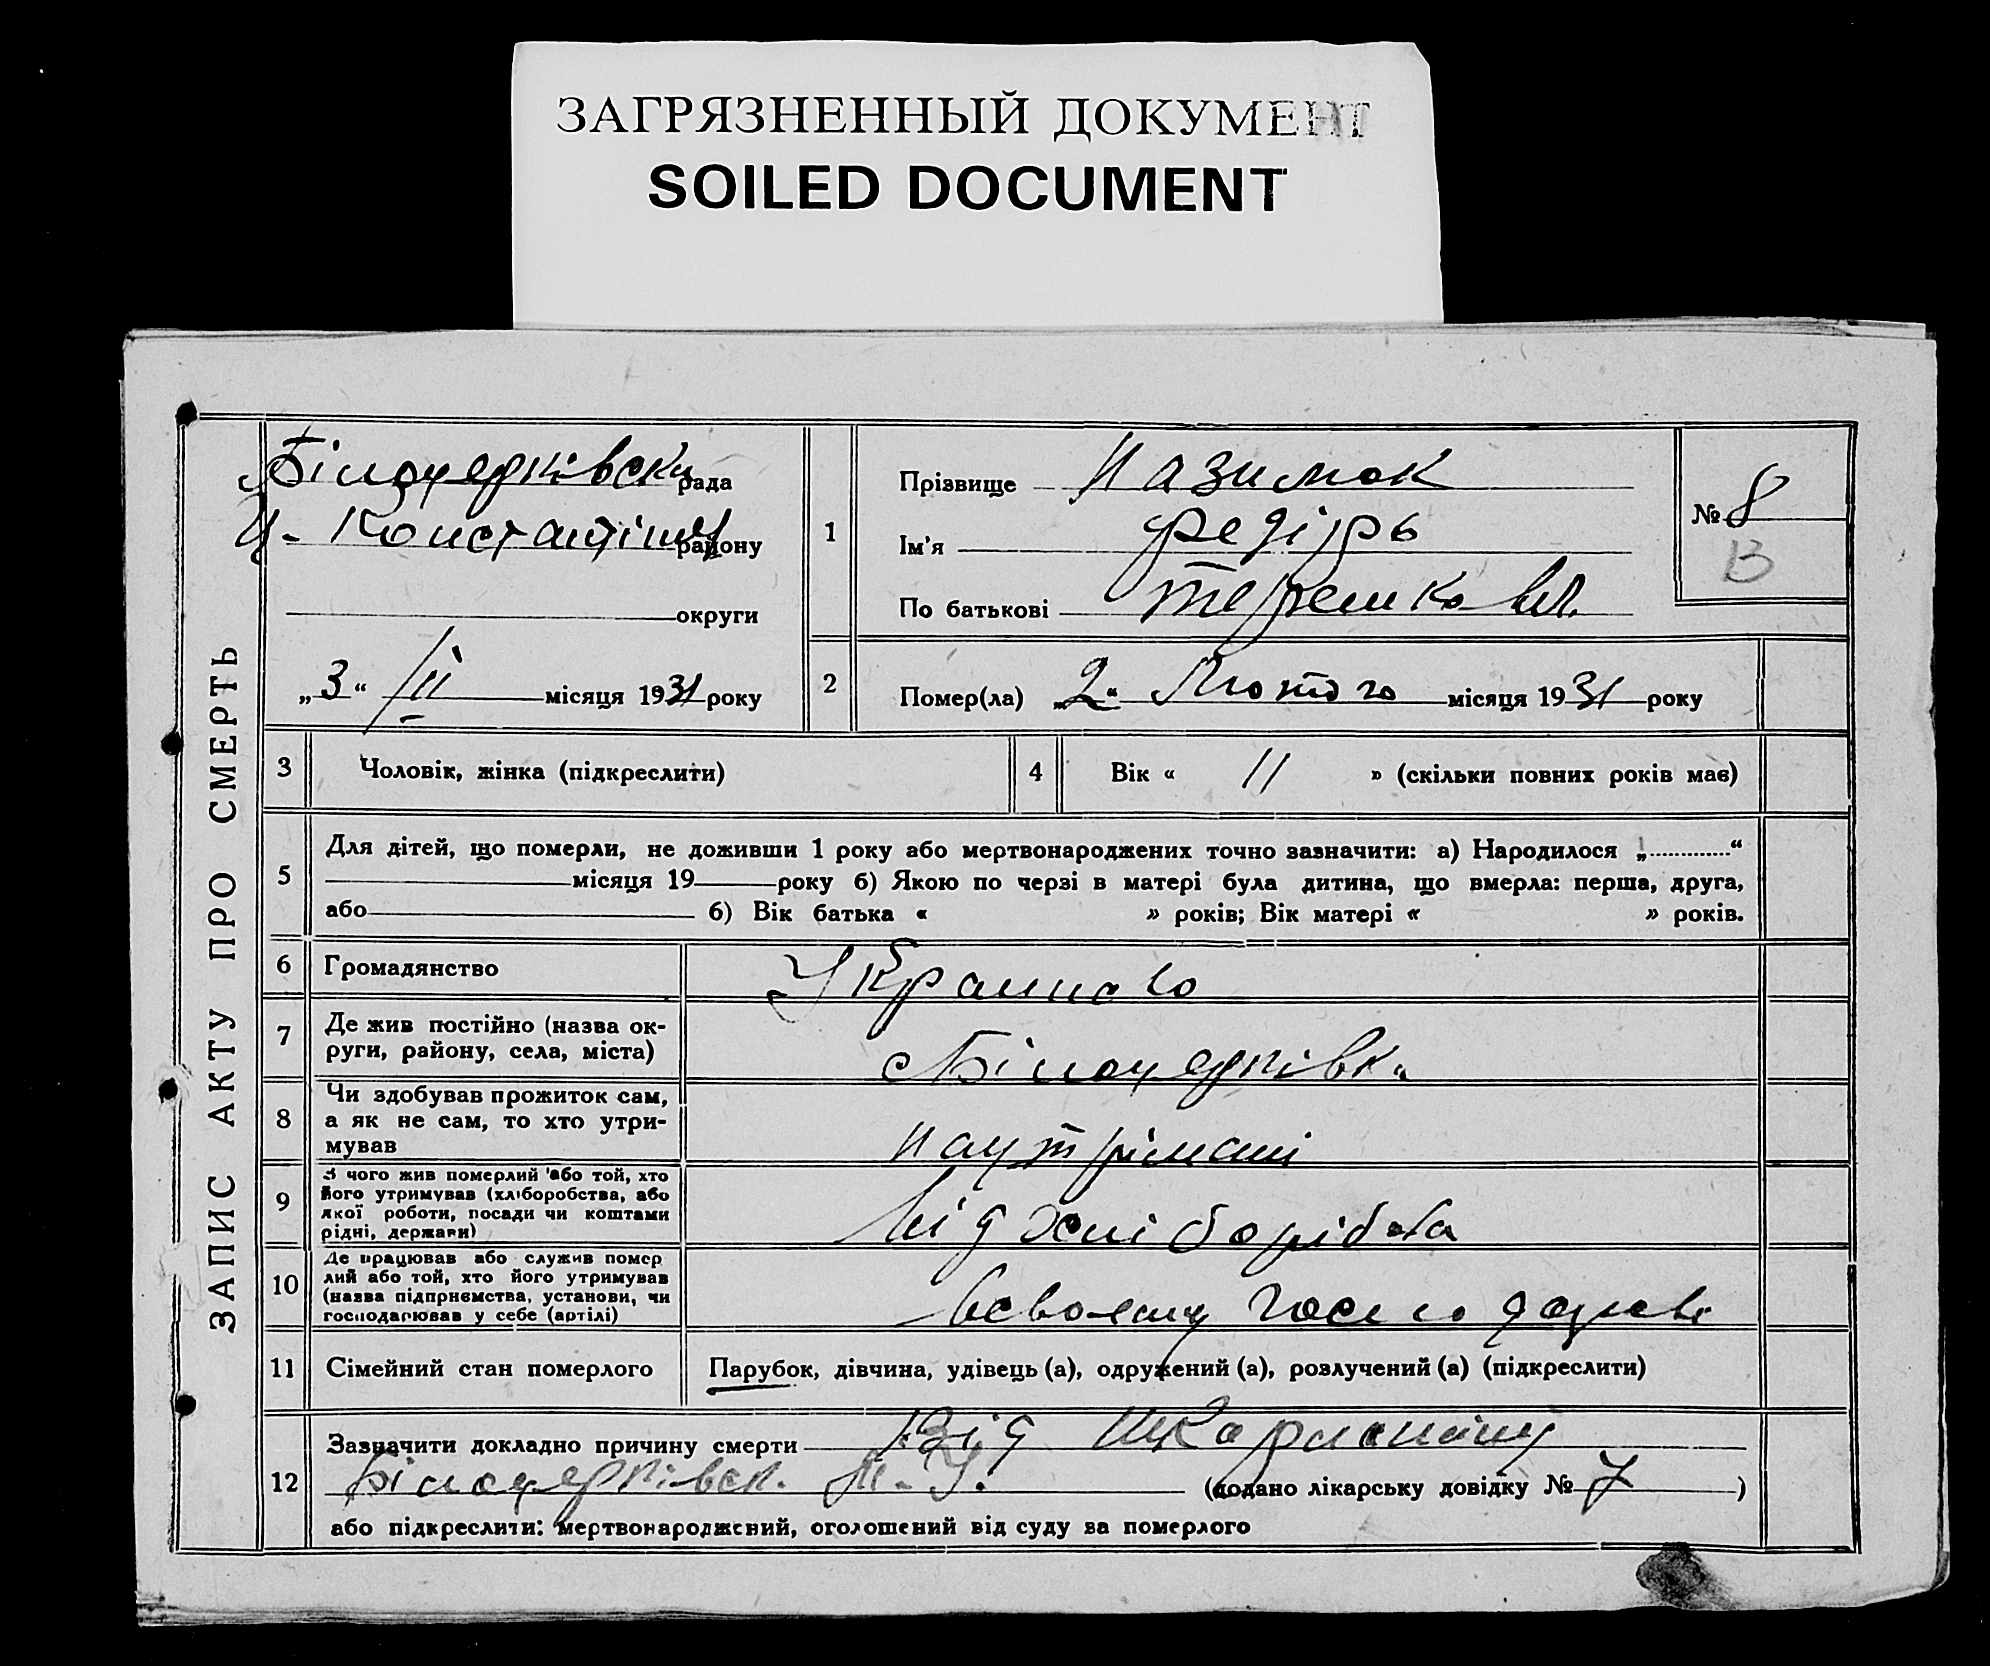 ЗАГРЯЗНЕННЫЙ ДОКУМЕНТ
SOILED DOCUMENT
ЗАПИС АКТУ ПРО СМЕРТЬ
Білоцерківська рада
району
округи
„3“ /II місяця 1931 року
1
Прізвище Назимок
Ім’я Федіръ
По батькові
№ 8
В
2
Помер(ла) „2“ Лютого місяця 1931 року
3
Чоловік, жінка (підкреслити)
4
Вік « 11 » (скільки повних років має)
5
Для дітей, що померли, не доживши 1 року або мертвонароджених точно зазначити: а) Народилося „............“
місяця 19 року б) Якою по черзі в матері була дитина, що вмерла: перша, друга,
або б) Вік батька « » років; Вік матері « » років.
6
Громадянство
7
Де жив постійно (назва ок-
руги, району, села, міста)
Білоцерківка
8
Чи здобував прожиток сам,
а як не сам, то хто утри-
мував
наутрімані
9
З чого жив померлий або той, хто
його утримував (хліборобства, або
якої роботи, посади чи коштами
рідні, держави)
від хліборібства
10
Де працював або служив помер
лий або той, хто його утримував
(назва підприємства, установи, чи
господарював у себе (артілі)
11
Сімейний стан померлого
Парубок, дівчина, удівець (а), одружений (а), розлучений (а) (підкреслити)
12
Зазначити докладно причину смерти Від шкарлатіни
Білоцерківск. (додано лікарську довідку № 7 )
або підкреслити: мертвонароджений, оголошений від суду за померлого